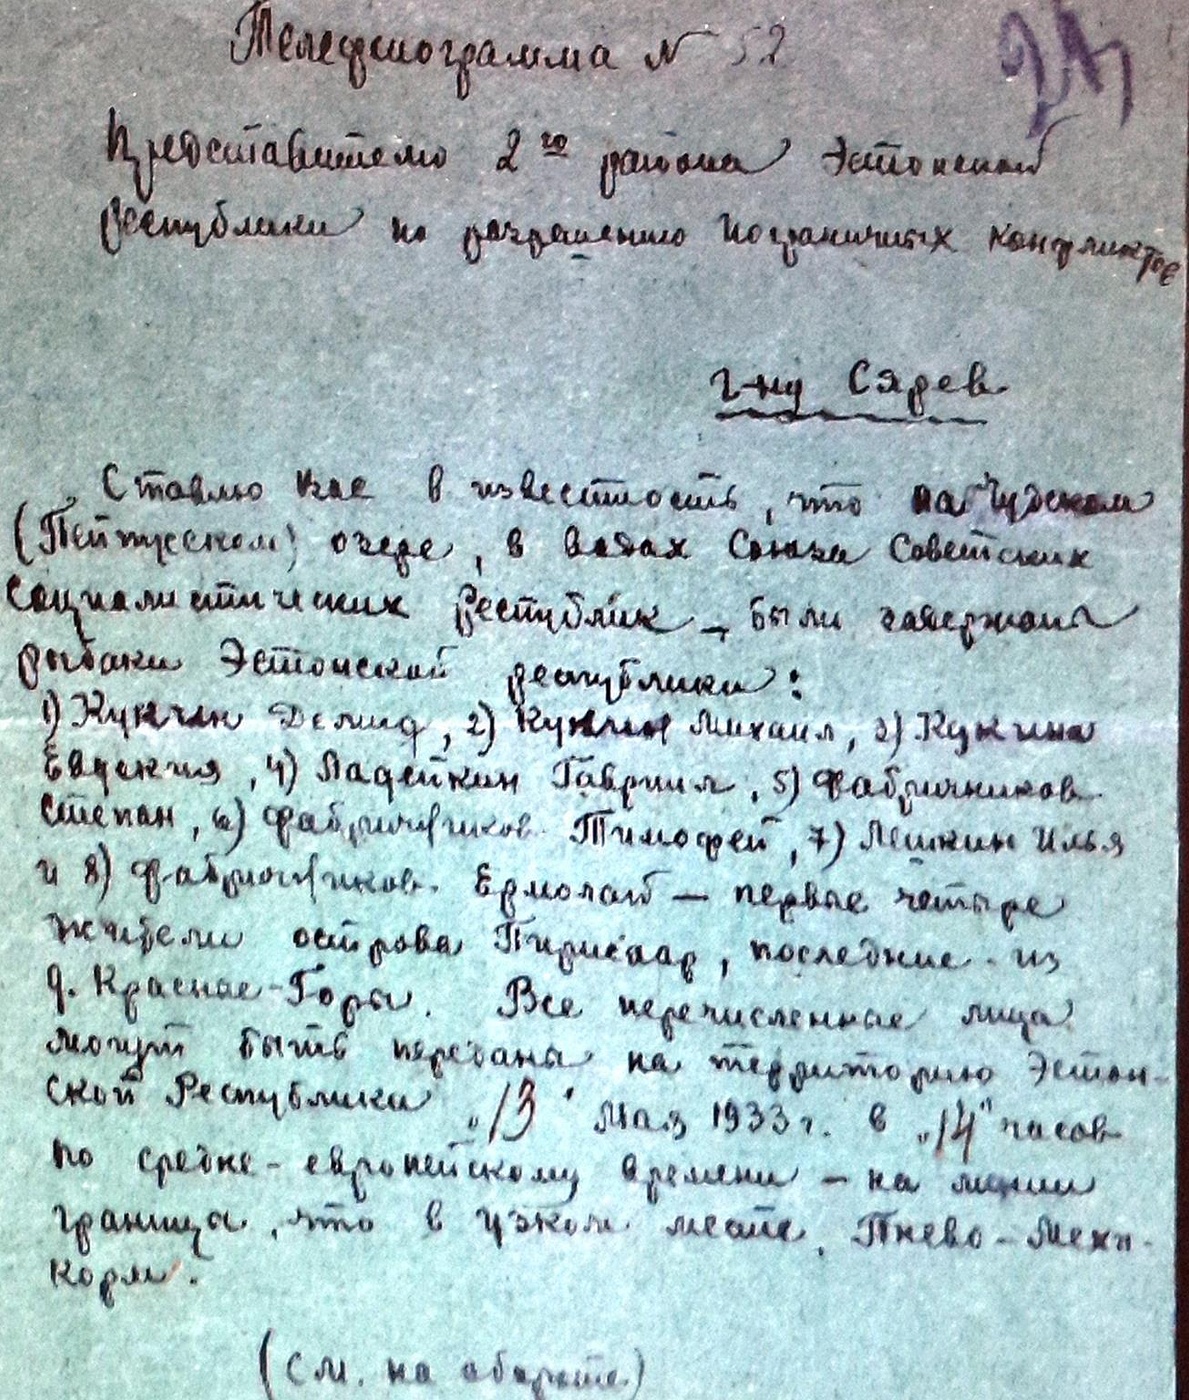 Телефонограмма № 52
Представителю 2го района Эстонской
республики по разрешению пограничных конфликтов
г-ну Сярев
Ставлю Вас в известность, что на Чудском
(Пейпусском) озере, в водах Союза Советских
Социалистических Республик – были задержаны
рыбаки Эстонской республики:
1) Кукин Демид, 2) Кукин Михаил, 3) Кукина
Евдокия, 4) Ладейкин Гавриил, 5) Фабричников
Степан, 6) Фабричников Тимофей, 7) Лешкин Илья
и 8) Фабричников Ермолай – первые четыре
жители острова Пирисаар, последние из
д. Красные-Горы. Все перечисленные лица
могут быть переданы на территорию Эстон-
ской Республики „13" Мая 1933 г. в „14" часов
по средне-европейскому времени – на линии
границы, что в узком месте, Пнево-Мехи-
корм.
(См. на обороте)